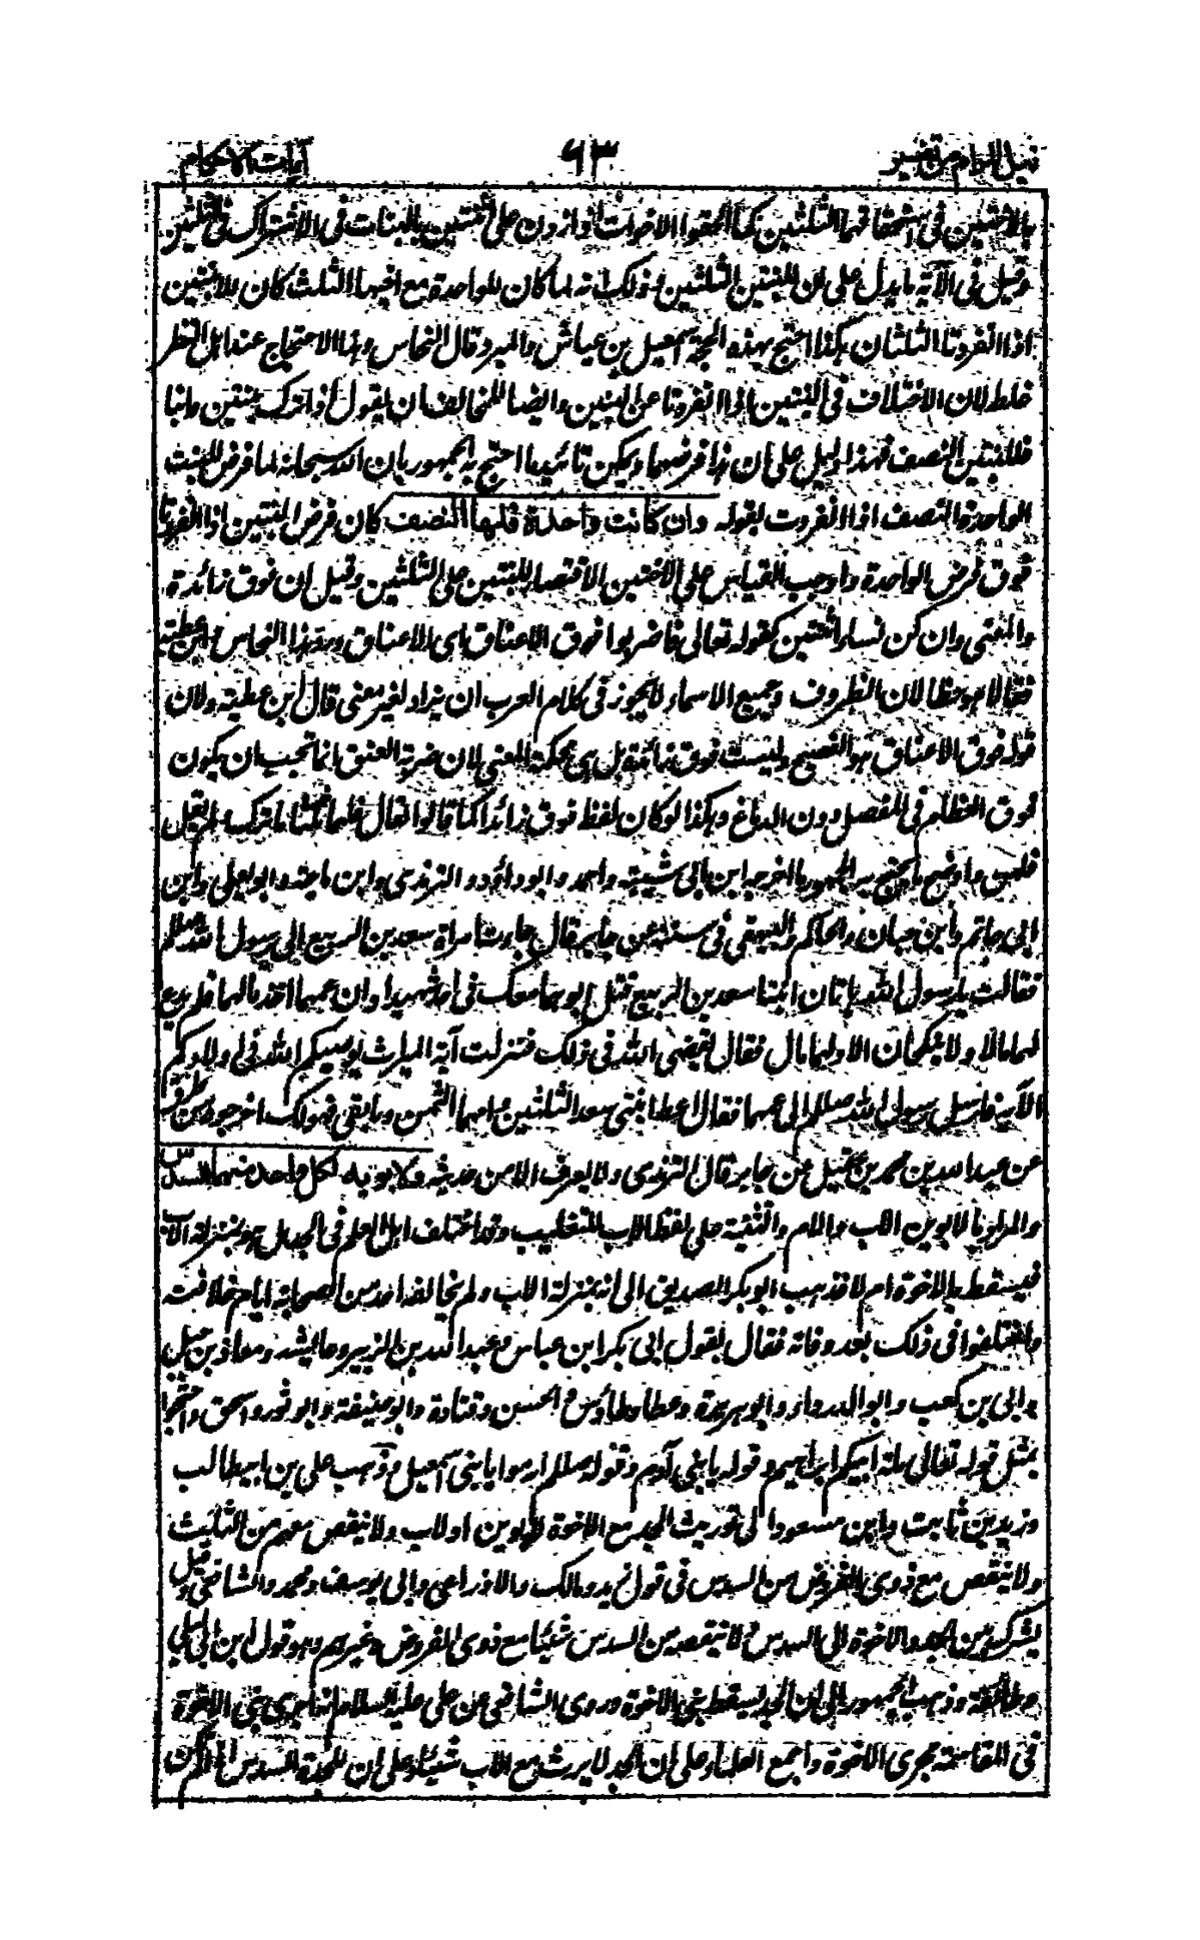 نيل المرام من تفسير ٩٣ آيات الاحكام
بالاختين فى استحقاقهما الثلثين كما الحقوا الاخوات اذا زدن على اثنتين بالبنات فى الاشتراك فى الثلثين
وقيل فى الآية ما يدل على ان للبنتين الثلثين وذلك انه لما كان للواحدة مع اخيها الثلث كان للابنتين
اذا انفردتا الثلثان هكذا احتج بهذه الحجة اسمعيل بن عياش والمبرد قال النحاس وهذا الاحتجاج عند اهل النظر
غلط لان الاختلاف فى البنتين اذا انفردتا عن البنين وايضا للمخالف ان يقول اذا ترك بنتين وابنا
فللبنتين النصف فهذا دليل على ان هذا فرضهما ويمكن تائيد ما احتج به الجمهور بان الله سبحانه لما فرض للبنت
الواحدة النصف اذا انفردت بقوله وان كانت واحدة فلها النصف كان فرض البنتين اذا انفردتا
فوق فرض الواحدة واوجب القياس على الاختين الاقتصار للبنتين على الثلثين وقيل ان فوق زائدة
والمعنى وان كن نساء اثنتين كقوله تعالى فاضربوا فوق الاعناق اى الاعناق ورد هذا النحاس وابن عطية
فقالا هو خطا لان الظروف وجميع الاسماء لا يجوز فى كلام العرب ان تزاد لغير معنى قال ابن عطية ولان
قوله فوق الاعناق هو الفصيح وليست فوق زائدة بل هى محكمة المعنى لان ضربة العنق انما تجب ان يكون
فوق العظام فى المفصل دون الدماغ وهكذا لو كان لفظ فوق زائدا كما قالوا لقال فلهما ثلثا ما ترك ولم يقل
فلهن واوضح ما يحتج به الجمهور ما اخرجه ابن ابى شيبة واحمد وابو داؤد والترمذى وابن ماجة وابو يعلى وابن
ابى حاتم وابن حبان والحاكم والبيهقى فى سننه عن جابر قال جاءت امرأة سعد بن الربيع الى رسول الله صللم
فقالت يا رسول الله هاتان ابنتا سعد بن الربيع قتل ابوهما معك فى احد شهيدا وان عمهما اخذ مالهما فلم يدع
لهما مالا ولا ينكحان الا ولهما مال فقال يقضى الله فى ذلك فنزلت آية الميراث يوصيكم الله فى اولادكم
الآية فارسل رسول الله صللم الى عمهما فقال اعط ابنتى سعد الثلثين وامهما الثمن وما بقى فهو لك اخرجوه من طرق
عن عبد الله بن محمد بن عقيل عن جابر قال الترمذى ولا يعرف الا من حديثه ولابويه لكل واحد منهما السدس
والمراد بالابوين الاب والام والتثنية على لفظ الاب للتغليب وقد اختلف اهل العلم فى الجد هل هو بمنزلة الاب
فيسقط به الاخوة ام لا فذهب ابو بكر الصديق الى انه بمنزلة الاب ولم يخالفه احد من الصحابة ايام خلافته
واختلفوا فى ذلك بعد وفاته فقال بقول ابى بكر ابن عباس وعبد الله بن الزبير وعايشة ومعاذ بن جبل
وابى بن كعب وابو الدرداء وابو هريرة وعطا وطاؤس والحسن وقتادة وابو حنيفة وابو ثور واسحق واحتجوا
بمثل قوله تعالى ملة ابيكم ابراهيم وقوله يا بنى آدم وقوله صللم ارموا يا بنى اسمعيل وذهب على بن ابيطالب
وزيد بن ثابت وابن مسعود الى توريث الجد مع الاخوة لابوين او لاب ولا ينقص معهم من الثلث
ولا ينقص مع ذوى الفروض من السدس فى قول زيد ومالك والاوزاعى وابى يوسف ومحمد والشافعى وقيل
يشرك بين الجد والاخوة الى السدس ولا ينقصه من السدس شيئا مع ذوى الفروض وغيرهم وهو قول ابن ابى ليلى
وطائفة وذهب الجمهور الى ان الجد يسقط بنى الاخوة وروى الشافعى عن على عليه السلام انه اجرى بنى الاخوة
فى المقاسمة مجرى الاخوة واجمع العلماء على ان الجد لا يرث مع الاب شيئا وعلى ان للجدة السدس اذا لم يكن